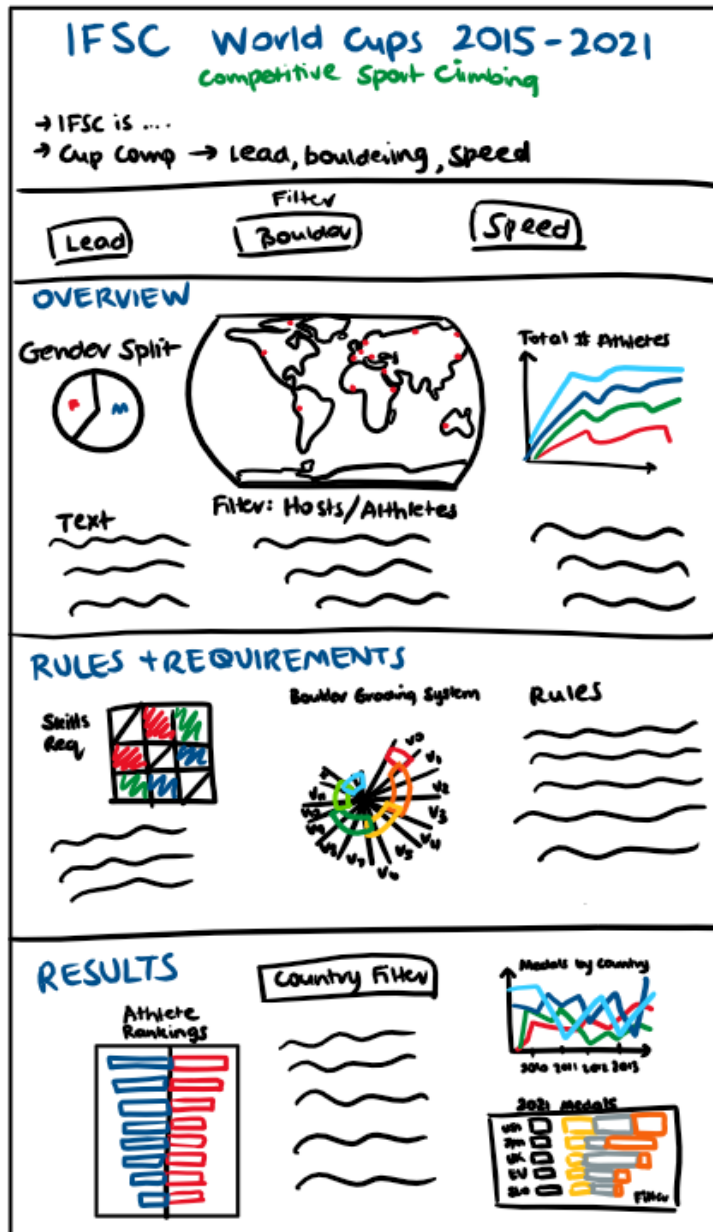 IFSC World Cups 2015-2021
Competitive Sport Climbing
→ IFSC is ....
→ Cup Comp → Lead, bouldering, speed
Filter
Lead
Boulder
Speed
OVERVIEW
Gender Split
F
M
Total # Athletes
Filter: Hosts/Athletes
Text
RULES + REQUIREMENTS
Skills
Req
Boulder Grading System
V0
V1
V2
V3
V4
V5
V6
V7
V8
Rules
RESULTS
Country Filter
Athlete
Rankings
Medals by Country
2010 2011 2012 2013
2021 Medals
UK
EU
SLO
Filter